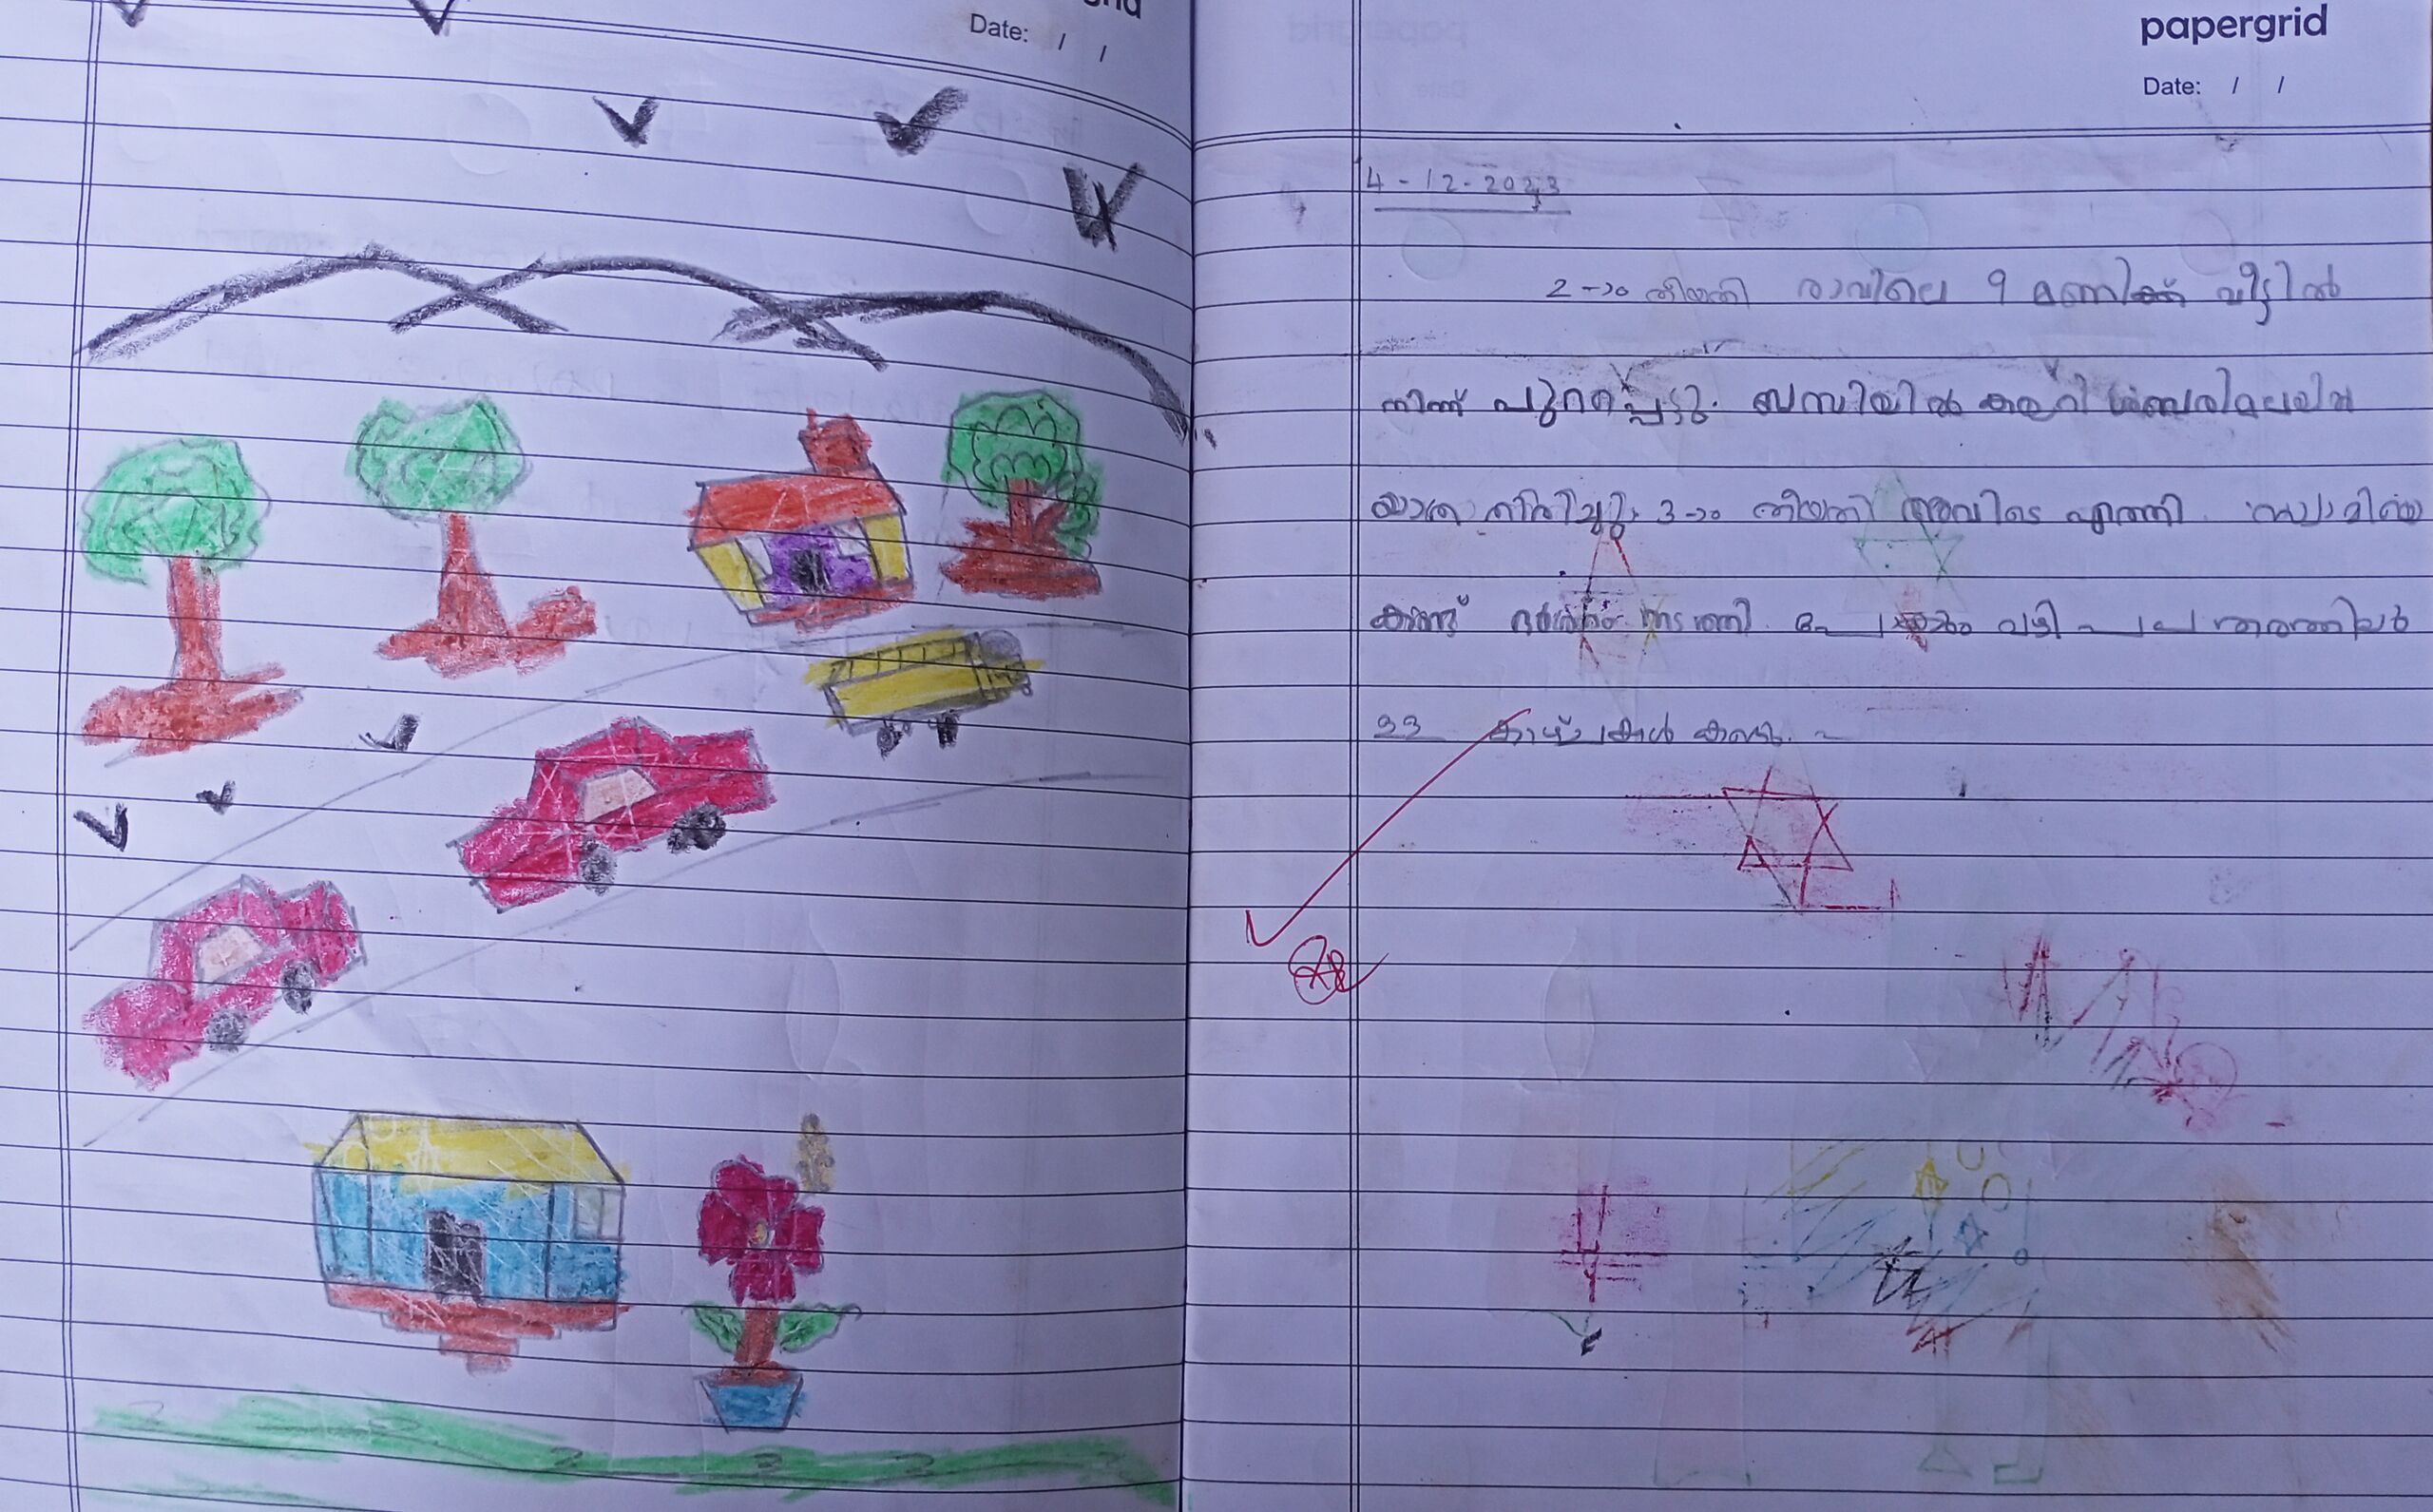 Date: / /
papergrid
Date: / /
4-12-2023
2-ാം തീയതി രാവിലെ 9 മണിക്ക് വീട്ടിൽ
നിന്ന് പുറപ്പെട്ടു. ബസിയിൽ കയറി ശബരിമലയിൽ
യാത്ര തിരിച്ചു. 3-ാം തീയതി അവിടെ എത്തി.
കണ്ട് ദർശനം നടത്തി. വഴി
കാഴ്ചകൾ കണ്ടു.